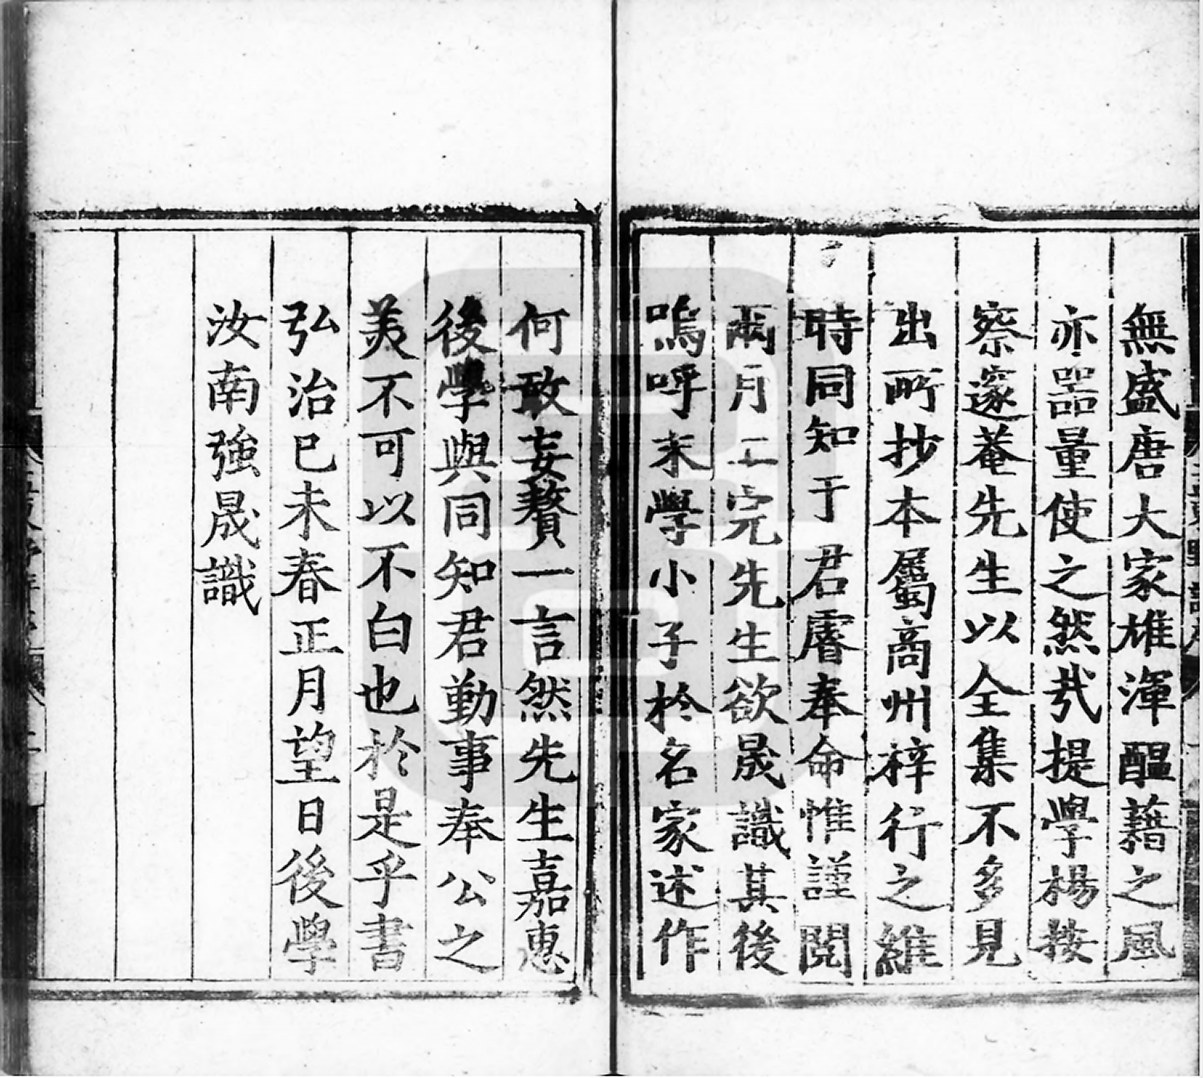 無盛唐大家雄渾醞藉之風
亦噐量使之然㢤提學楊按
察邃菴先生以全集不多見
出所抄本屬商州梓行之維
時同知于君睿奉命惟謹閱
兩月工完先生欲晟識其後
嗚呼末學小子於名家述作
何敢妄贅一言然先生嘉惠
後學與同知君勤事奉公之
美不可以不白也於是乎書
弘治已未春正月望日後學
汝南強晟識